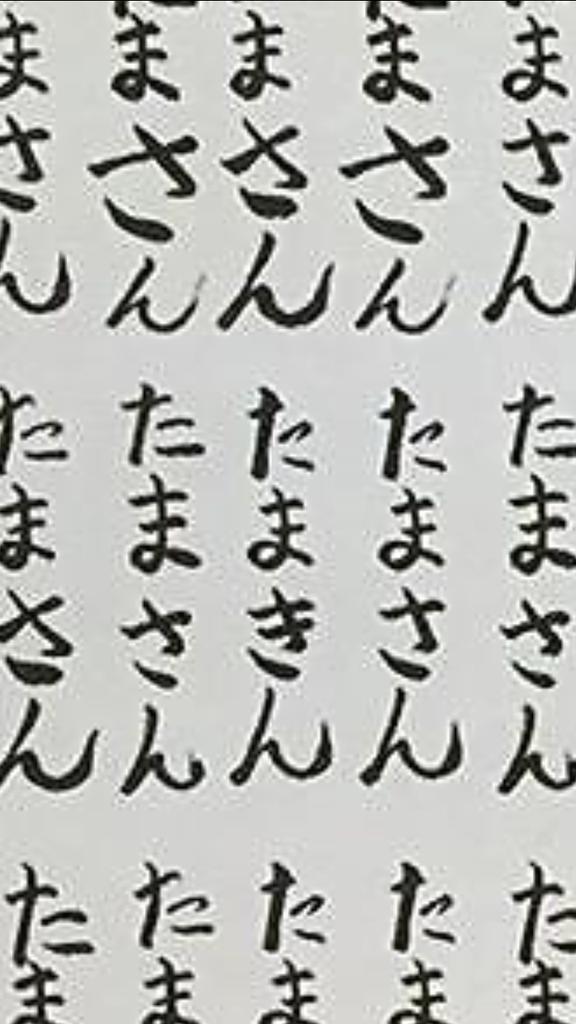 まさん
まさん
まさん
まさん
まさん
たまさん
たまさん
たまきん
たまさん
たまさん
たま
たま
たま
たま
たま